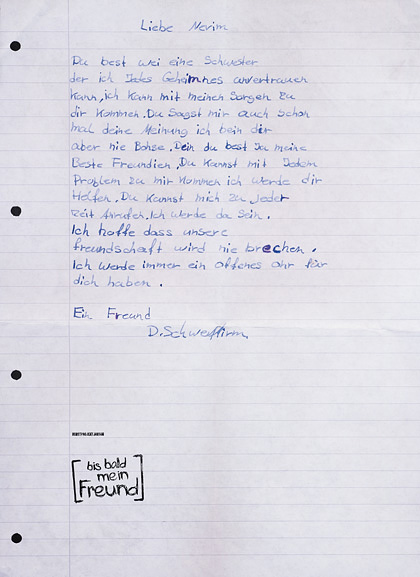 Liebe Nevim
Du best wei eine Schwester
der ich Jedes Geheimnes anvertrauen
kann, ich kann mit meinen Sorgen zu
dir kommen. Du Sagst mir auch Schon
mal deine Meinung ich bein dir
aber nie Böhse. Dein du best Ja meine
Beste Freundien, Du kannst mit Jedem
Problem zu mir kommen ich werde dir
Helfen. Du kannst mich zu Jeder
Zeit Anrufen. Ich werde da Sein.
Ich hoffe dass unsere
freundschaft wird nie brechen.
Ich werde immer ein offenes ohr für
dich haben.
Ein Freund
bis bald
mein
Freund